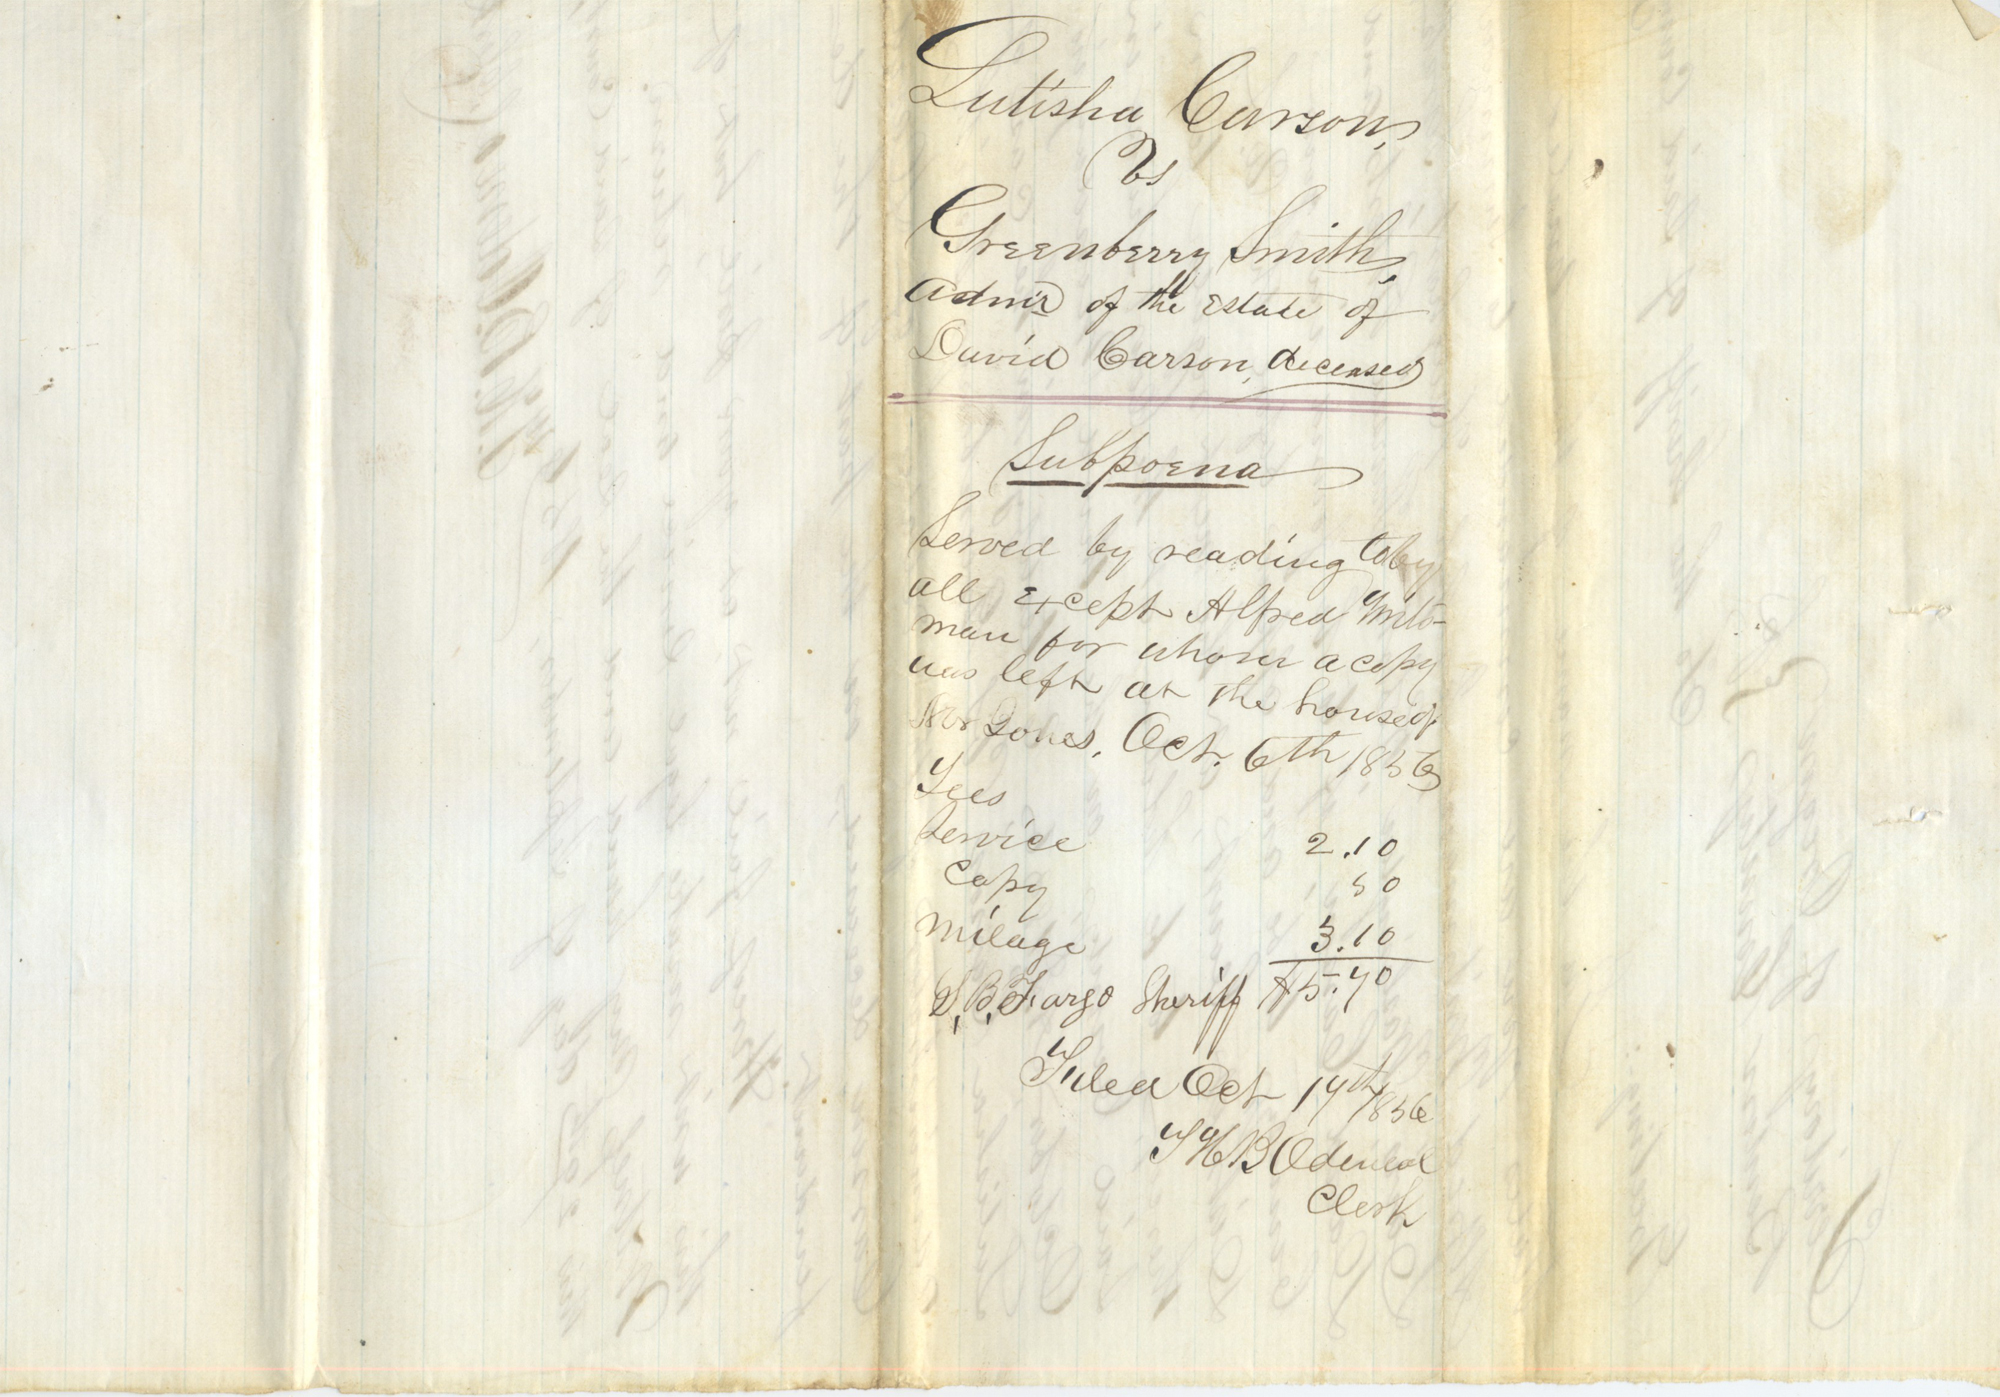 Lutisha Carson,
Vs
Greenberry Smith,
Admr of the Estate of
David Carson, deceased
Subpoena
Served by reading to by
all except Alfred
man for whom a copy
was left at the house of
Jones, Oct. 6th 1856
Fees
Service 2.10
Copy 50
Milage 3.10
S, B, Fargo Sheriff $5.70
Filed Oct 14th 1856
T H B Odeneal
Clerk